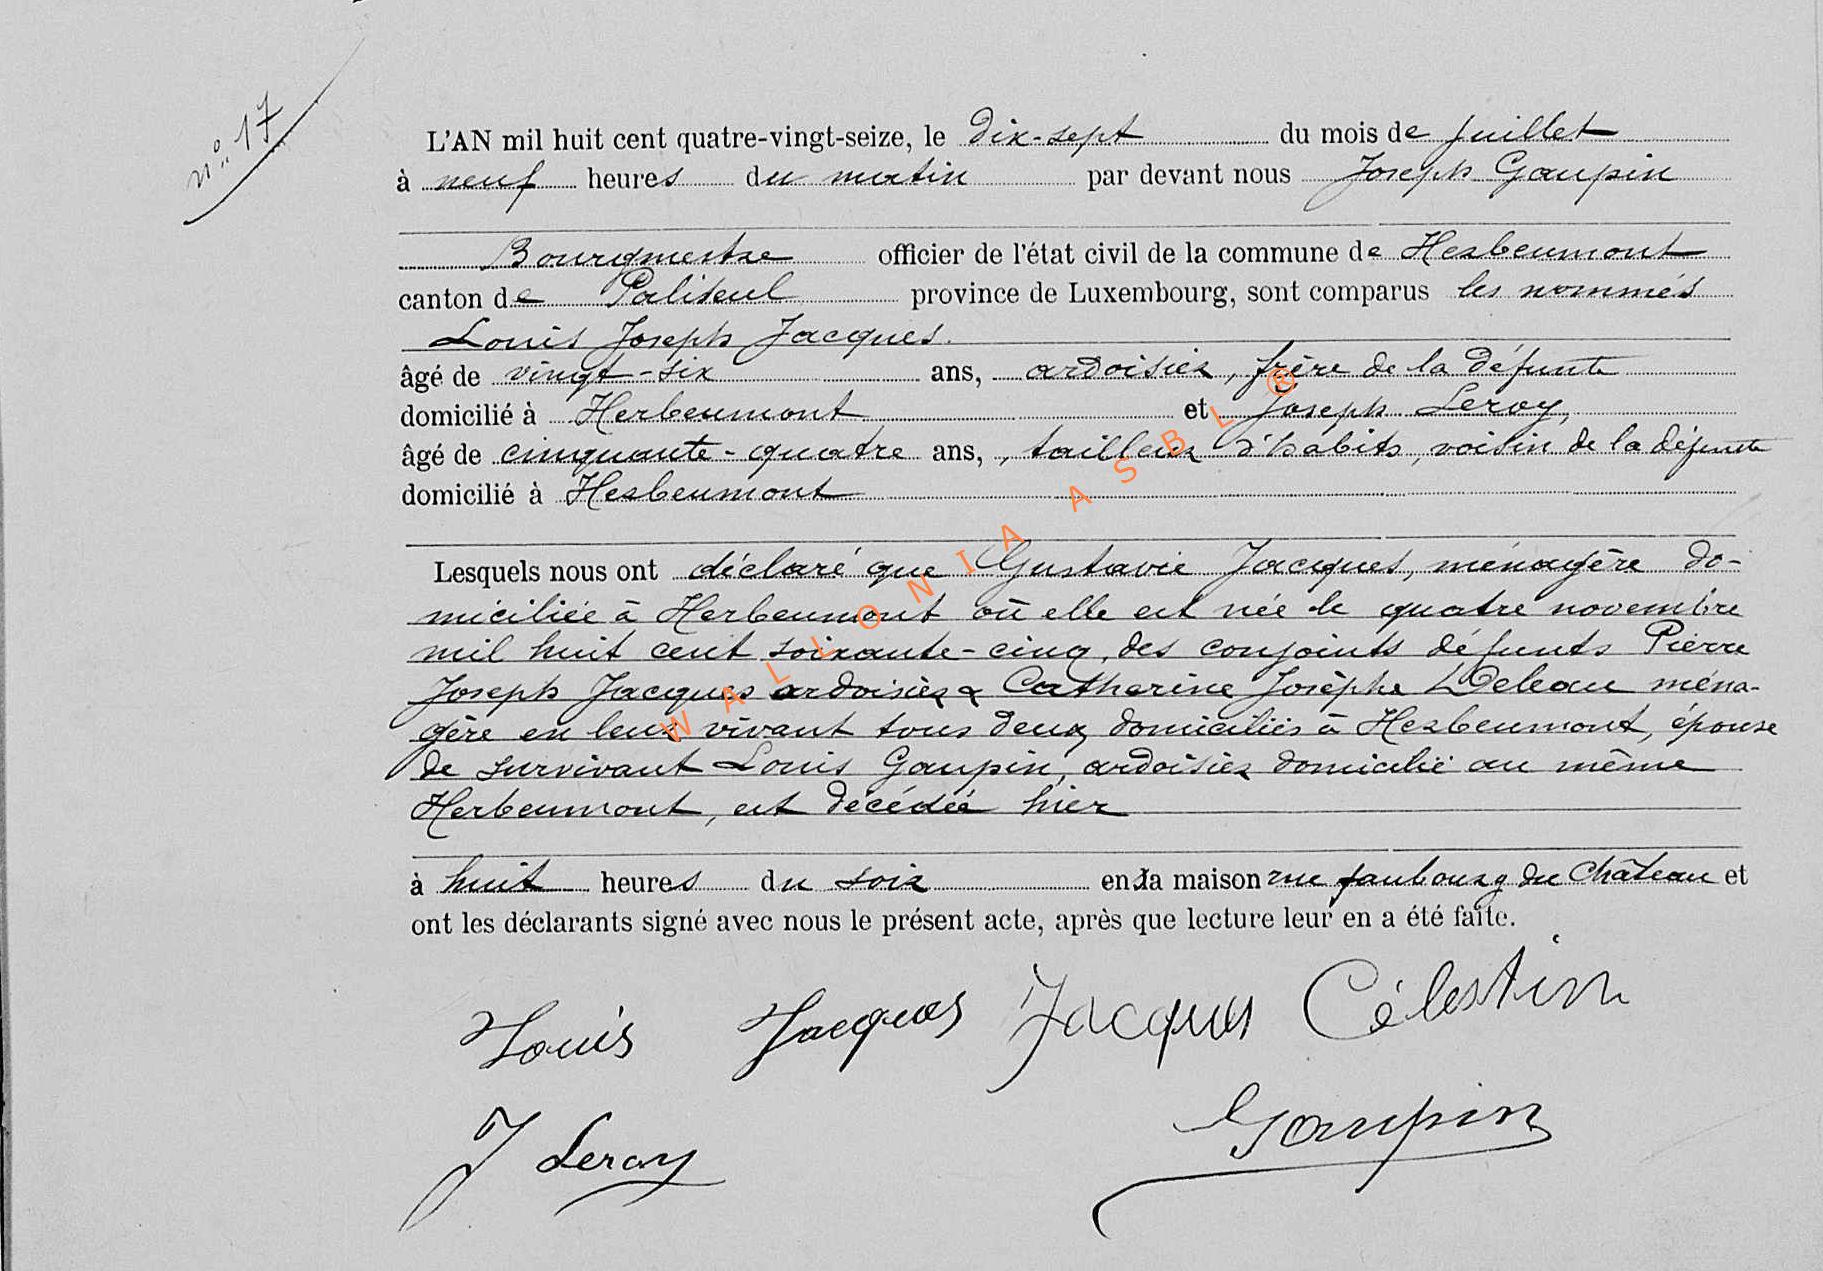 n° 17
L'AN mil huit cent quatre-vingt-seize, le dix-sept du mois de juillet
à neuf heures du matin par devant nous Joseph Goupin
Bourgmestre officier de l'état civil de la commune de Herbeumont
canton de Paliseul province de Luxembourg, sont comparus les nommés
Louis Joseph Jacques.
âgé de vingt-six ans, ardoisier, frère de la défunte
domicilié à Herbeumont et Joseph Leroy,
âgé de cinquante-quatre ans, , tailleur d'habits, voisin de la défunte
domicilié à Herbeumont
Lesquels nous ont déclaré que Gustavie Jacques, ménagère do-
miciliée à Herbeumont où elle est née le quatre novembre
mil huit cent soixante-cinq, des conjoints défunts Pierre
Joseph Jacques ardoisier & Catherine Josèphe Deleau ména-
gère en leur vivant tous deux domiciliés à Herbeumont, épouse
de survivant Louis Goupin, ardoisier domicilié au même
Herbeumont, est décédée hier
à huit heures du soir en sa maison rue faubourg du Château et
ont les déclarants signé avec nous le présent acte, après que lecture leur en a été faite.
Louis Jacques Jacques Célestin
J Leroy Goupin
WALLONIA ASBL ®